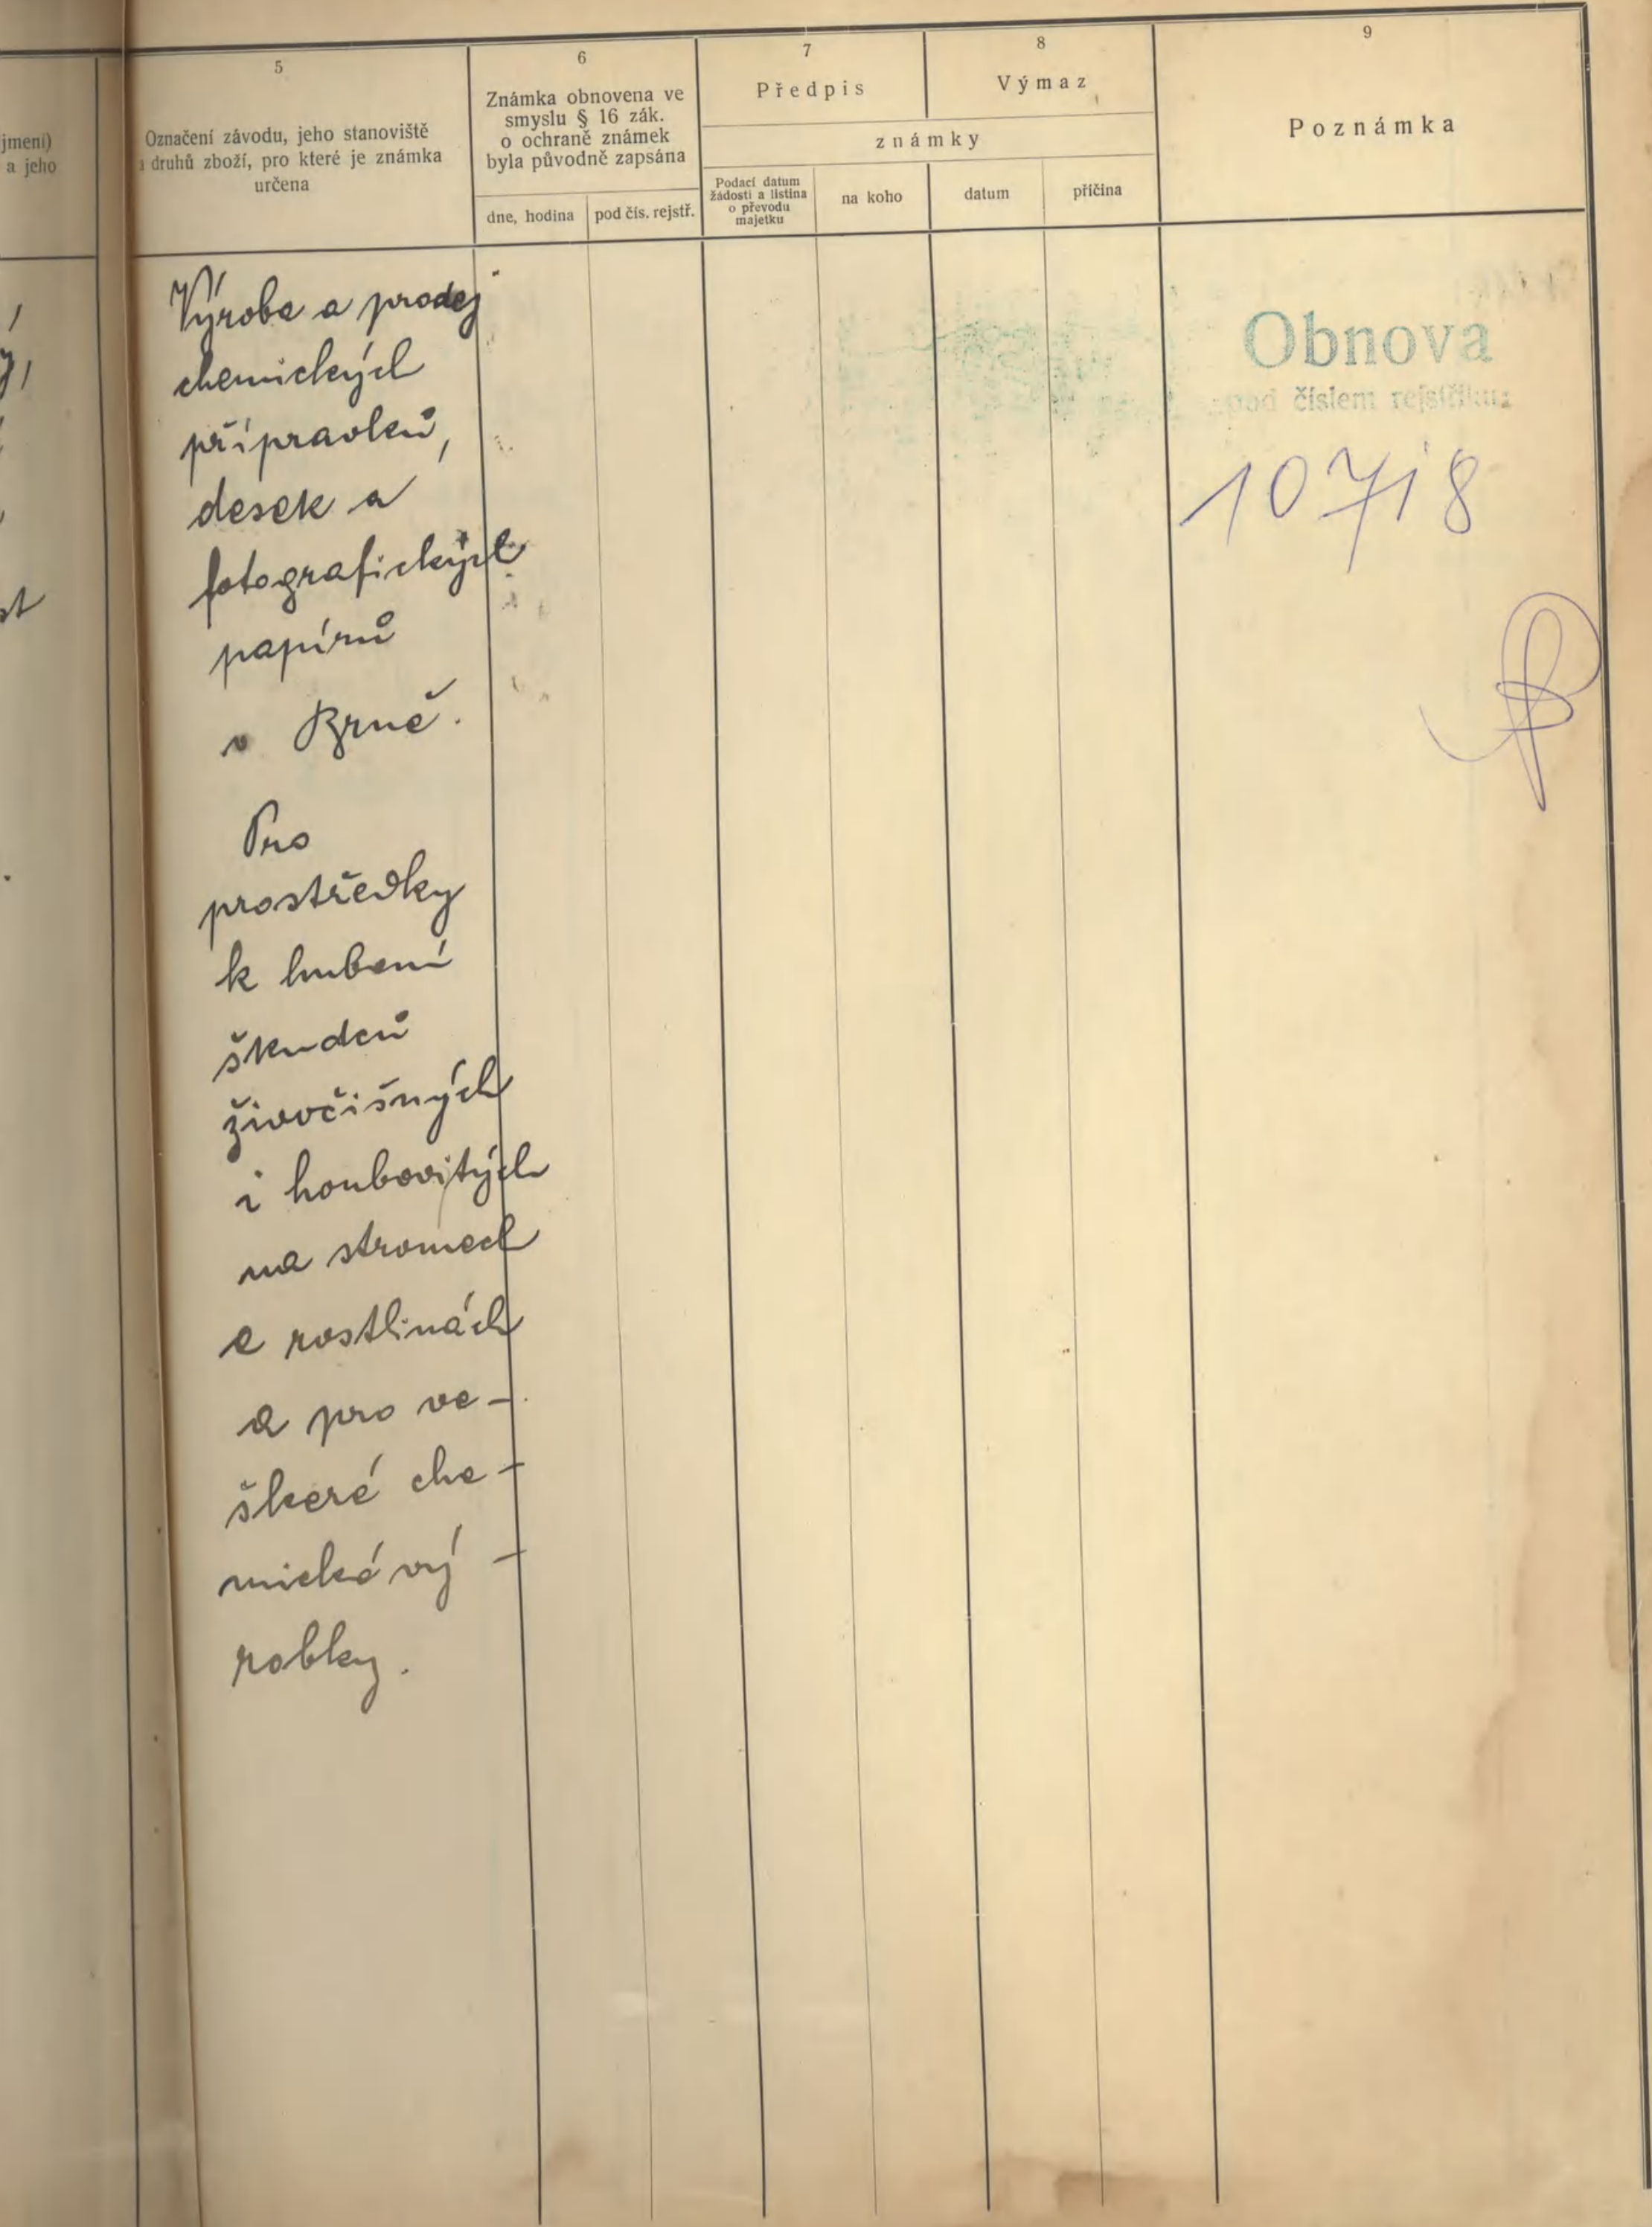 jmení)
a jeho
5
Označení závodu, jeho stanoviště
a druhů zboží, pro které je známka
určena
6
Známka obnovena ve
smyslu § 16 zák.
o ochraně známek
byla původně zapsána
dne, hodina
pod čís. rejstř.
7
Předpis
8
Výmaz
známky
Podací datum
žádosti a listina
o převodu
majetku
na koho
datum
příčina
9
Poznámka
Výroba a prodej
chemických
přípravků,
desek a
fotografických
papírů
v Brně.
Pro
prostředky
k hubení
škudců
živočišných
i houbovitých
na stromech
a rostlinách
a pro ve-
škeré che-
mické vý-
robky.
Obnova
pod číslem rejstříku:
10718
st